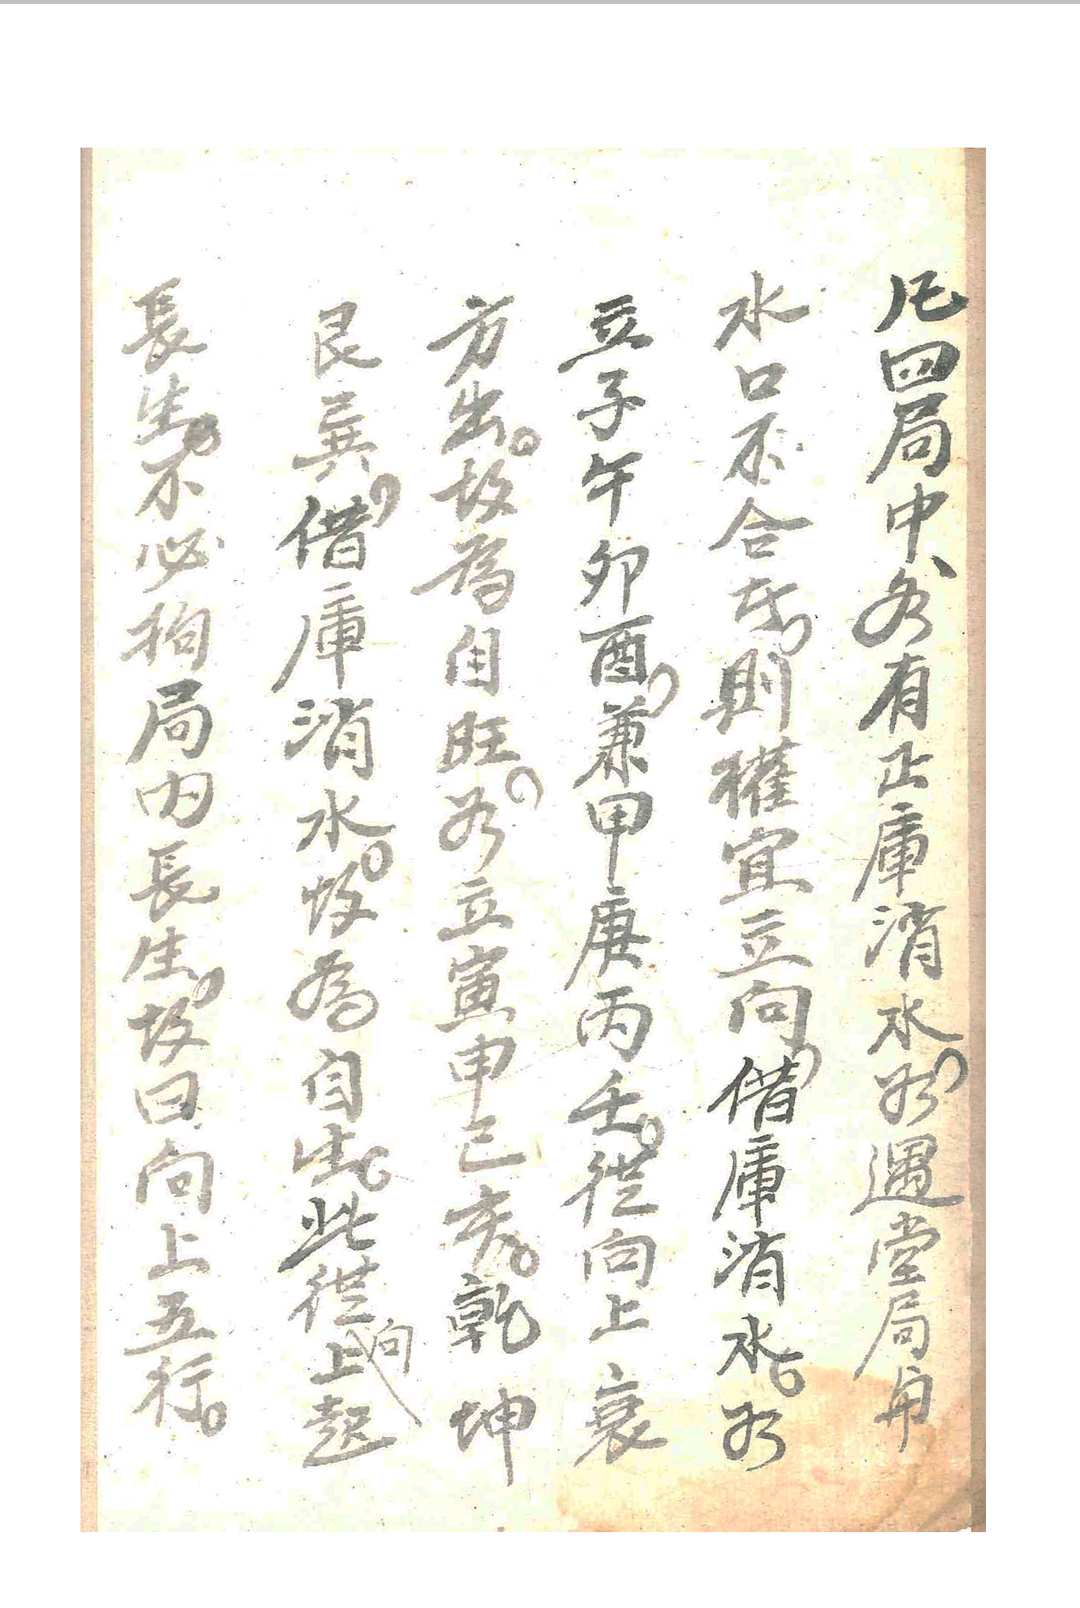 凡四局中、各有正庫消水，如遇堂局
水口不合者，則權宜立向，借庫消水。如
立子午卯酉，兼甲庚丙壬。從向上衰
方出。故為自旺。如立寅申巳亥。乾坤
艮巽，借庫消水。故為自生。此從向上起
長生。不必拘局內長生，故曰向上五行。